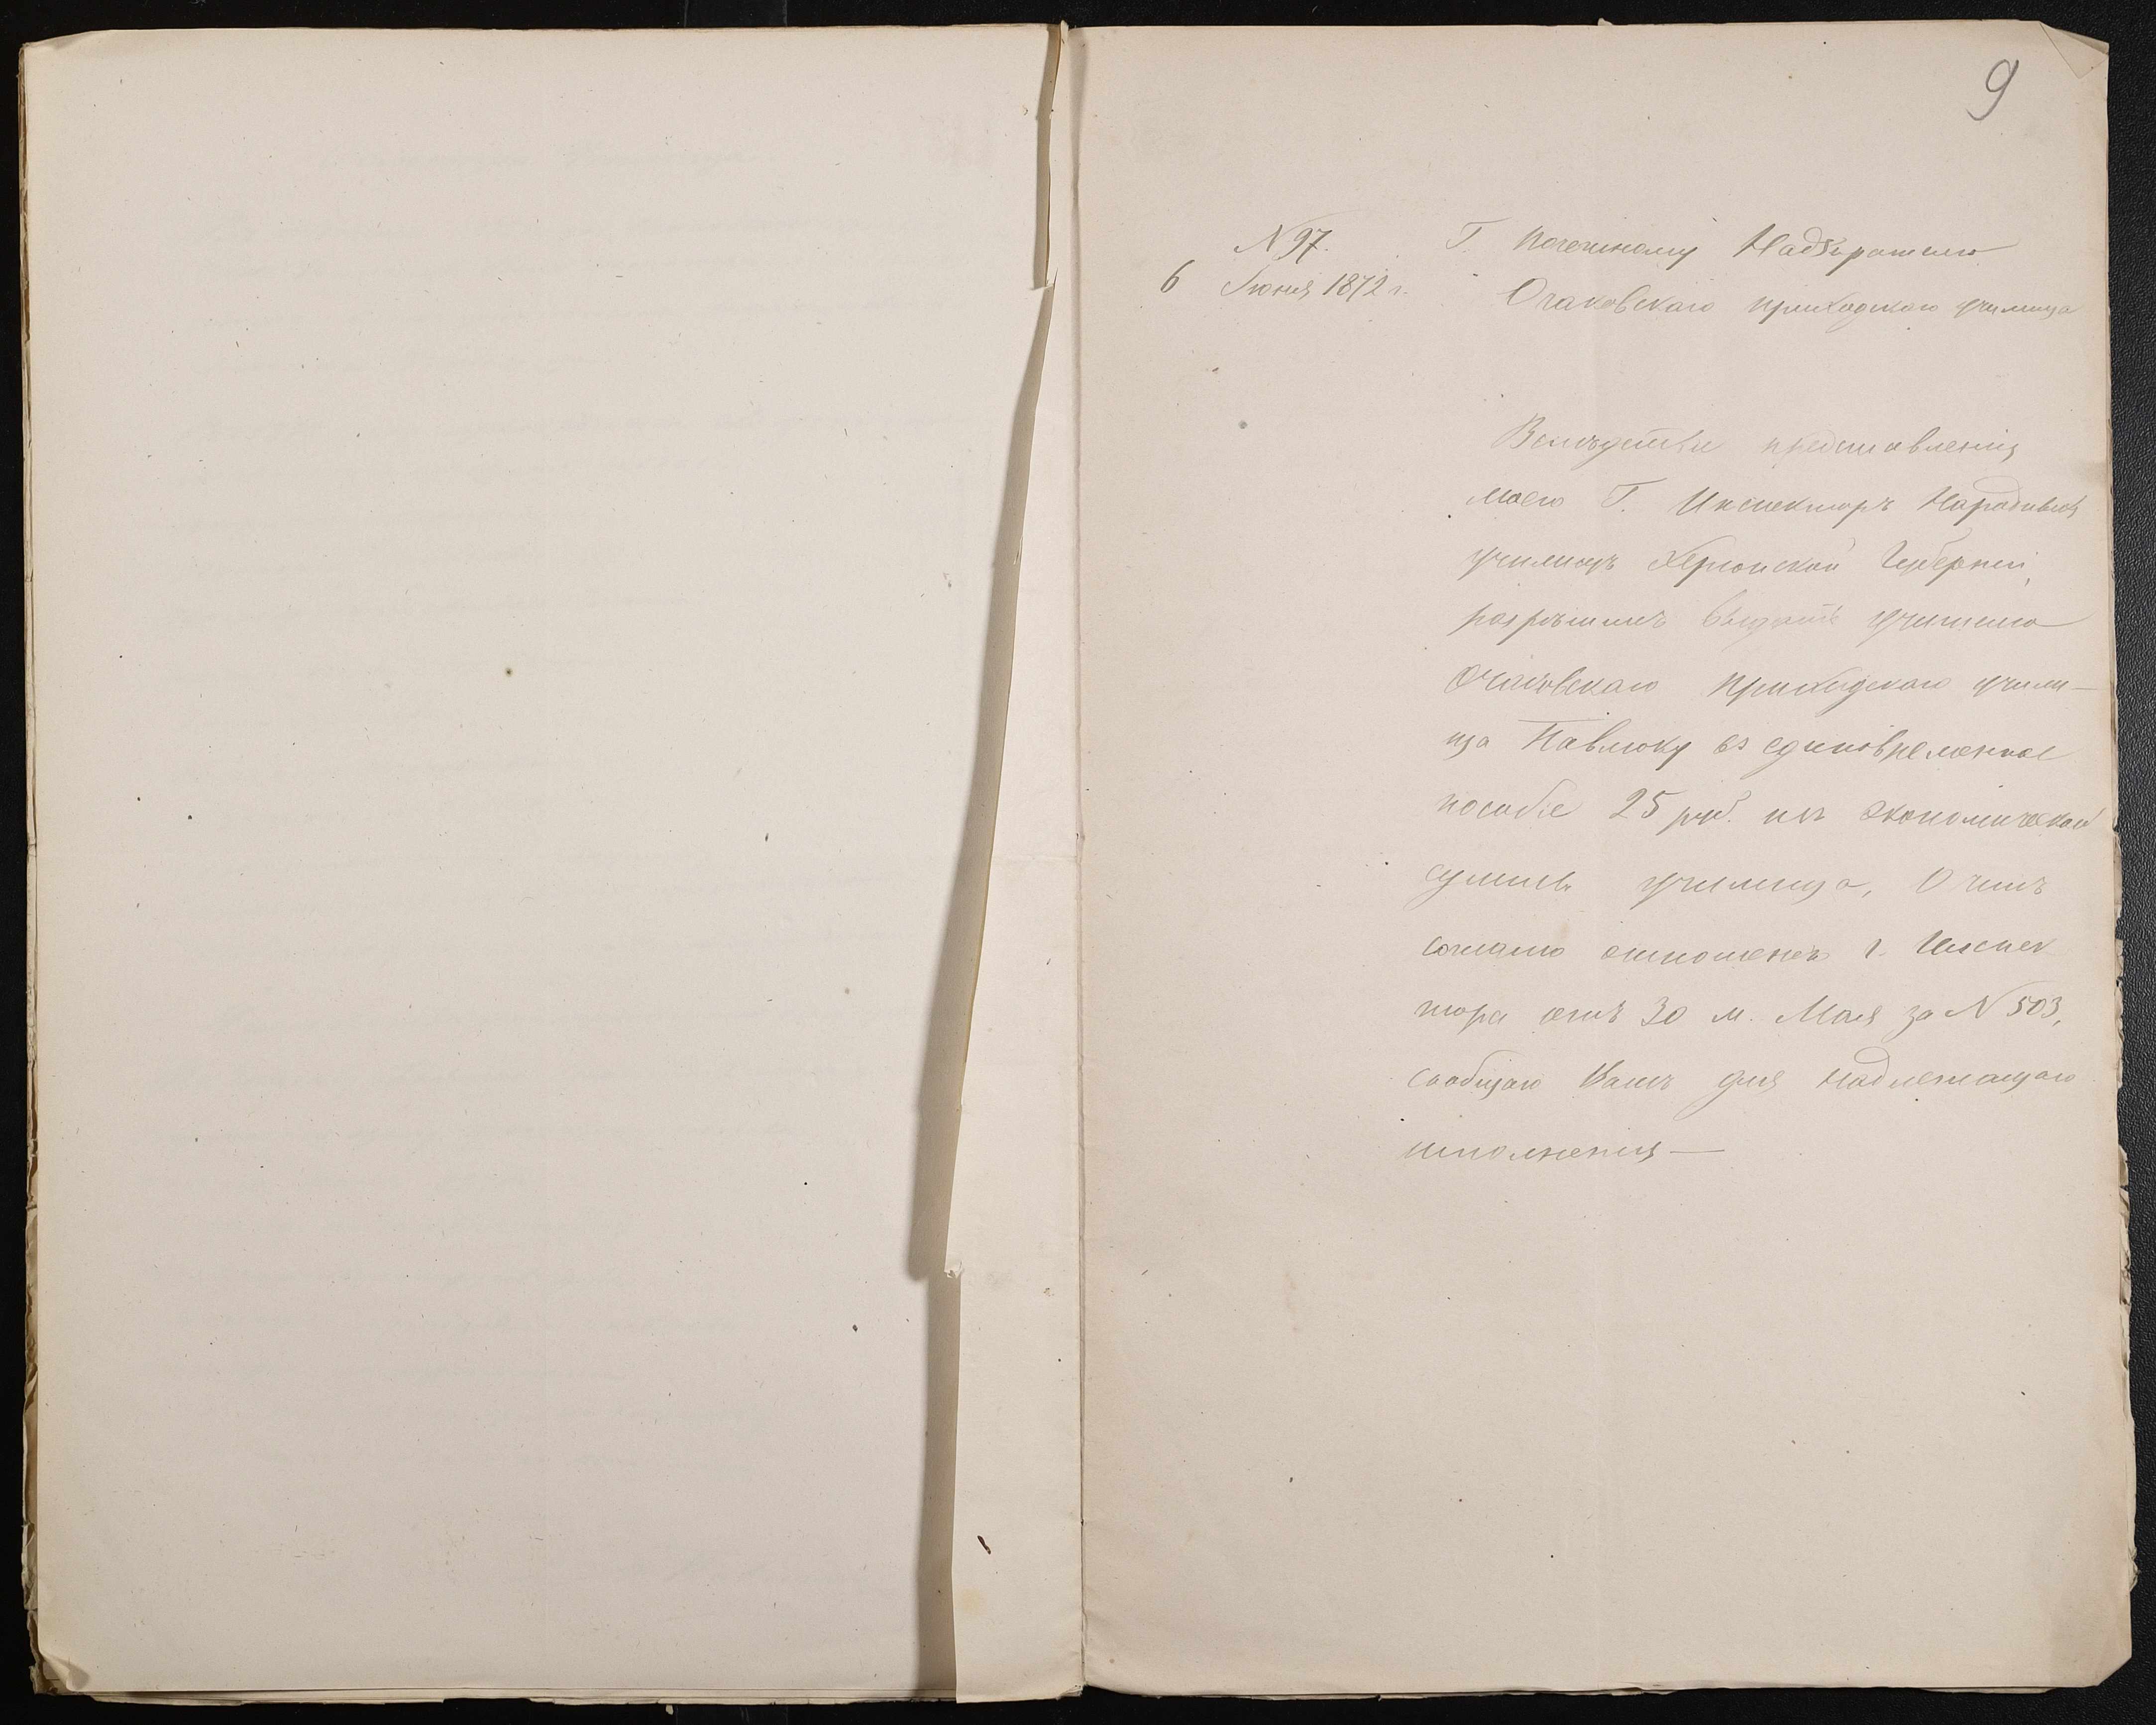 9
N 97.
6 Іюня 1872 г.
Г. Почетному Надзирателю
Очаковскаго приходскаго училища
Вслѣдствіе представленія
моего Г. Инспекторъ Народныхъ
училищъ Херсонской Губерніи,
разрѣшилъ выдать учителю
Очаковскаго приходскаго учили-
ща Павлюку въ единовременное
пособіе 25 руб. изъ экономической
суммы училища, О чемъ
согласно отношенія г. Инспек
тора отъ 30 м. Мая за N 503,
сообщаю Вамъ для надлежащаго
исполненія —